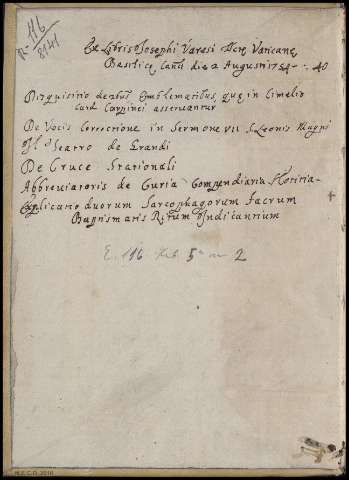 R-116
8141
Ex Libris Josephi Varesi Sacrę Vaticanę
Basilicę Canci die 2 Augusti 1754 - :- 40
Disquisitio de duobus Emblematibus, quę in Cimelio
Card Carpinei asservantur
De Vocis correctione in Sermone VII S. Leonis Magni
Il Teatro de Grandi
De Cruce Stationali
Abbreviatoris de Curia Compendiaria Notitia
Explicatio duorum Sarcophagorum sacrum
Baptismatis Ritum Indicantium
E. 116 Lib 5º nº 2
M.E.C.D. 2016